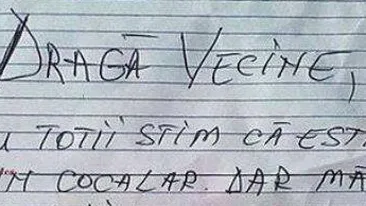 DRAGĂ VECINE,
TOTII STIM CĂ EST
COCALAR. DAR MĂ